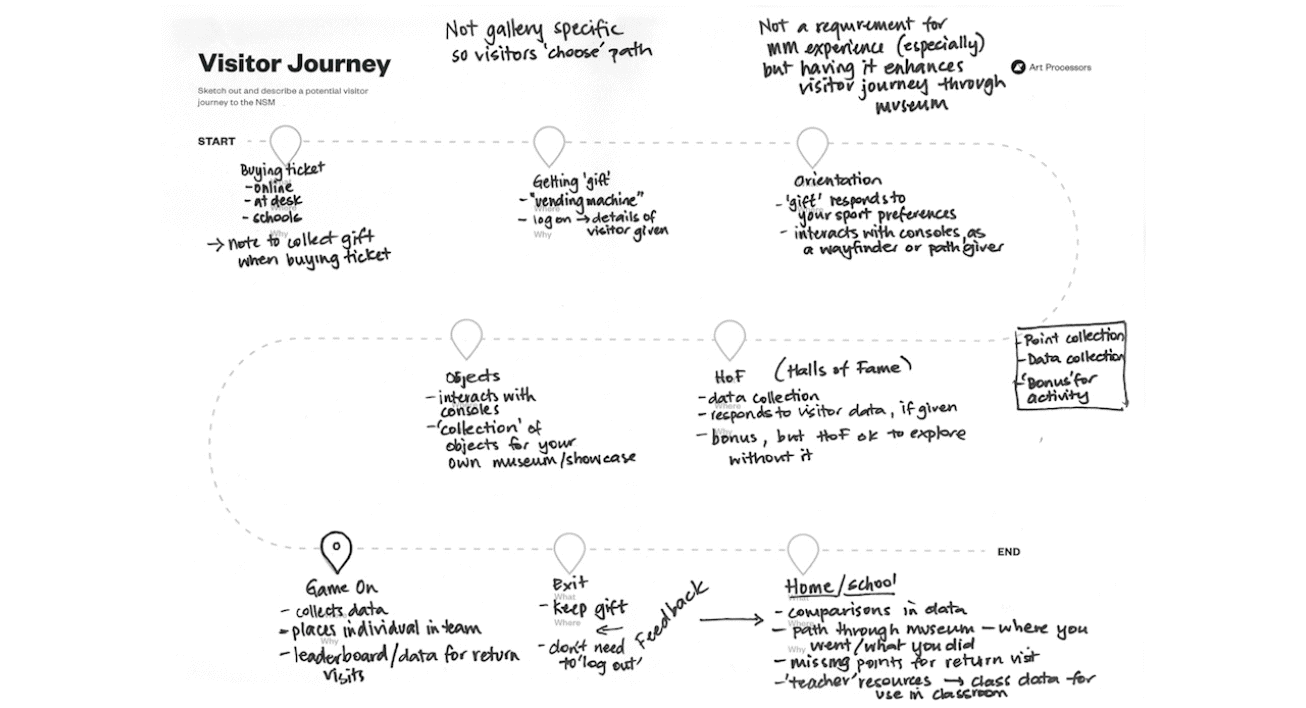 Not gallery specific
so visitors 'choose' path
Not a requirement for
MM experience (especially)
but having it enhances
visitor journey through
museum
Visitor Journey
Art Processors
Sketch out and describe a potential visitor
journey to the NSM
START
Buying ticket
- online
- at desk
- schools
Where
Why
→ note to collect gift
when buying ticket
Getting 'gift'
- "vending machine"
Where
- log on → details of
visitor given
Why
Orientation
- 'gift' responds to
your sport preferences
- interacts with consoles, as
a wayfinder or path giver
- Point collection
- Data collection
- 'Bonus' for
activity
HoF (Halls of Fame)
- data collection
Where
- responds to visitor data, if given
Why
- bonus, but HoF ok to explore
without it
Objects
- interacts with
consoles
- 'collection' of
objects for your
own museum/showcase
Game On
- collects data
- places individual in team
Why
- leaderboard/data for return
visits
Exit
What
- keep gift
Where
←
- don't need
to 'log out'
Feedback
→
END
Home/school
What
- comparisons in data
Where
- path through museum – where you
Why
went/what you did
- missing points for return visit
- 'teacher' resources → class data for
use in classroom